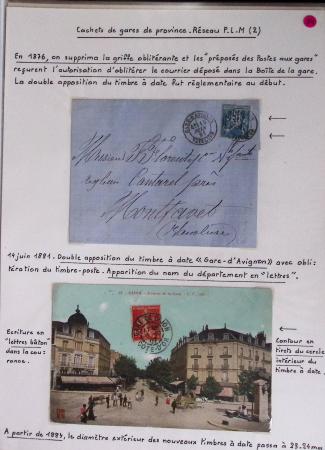 Cachets de gares de province. Réseau P.L.M (2)
En 1876, on supprima la griffe oblitérante et les "préposés des Postes aux gares"
reçurent l'autorisation d'oblitérer le courrier déposé dans la Boîte de la gare.
La double apposition du timbre à date fut réglementaire au début.
Monsieur
Cantarel près
Montfavet
(Vaucluse)
14 juin 1881. Double apposition du timbre à date «Gare-d'Avignon» avec obli=
tération du timbre-poste. Apparition du nom du département en "lettres".
Ecriture en
"lettres bâton"
dans la cou=
ronne.
Contour en
tirets du cercle
intérieur du
timbre à date.
A partir de 1884, le diamètre extérieur des nouveaux timbres à date passa à 23-24mm